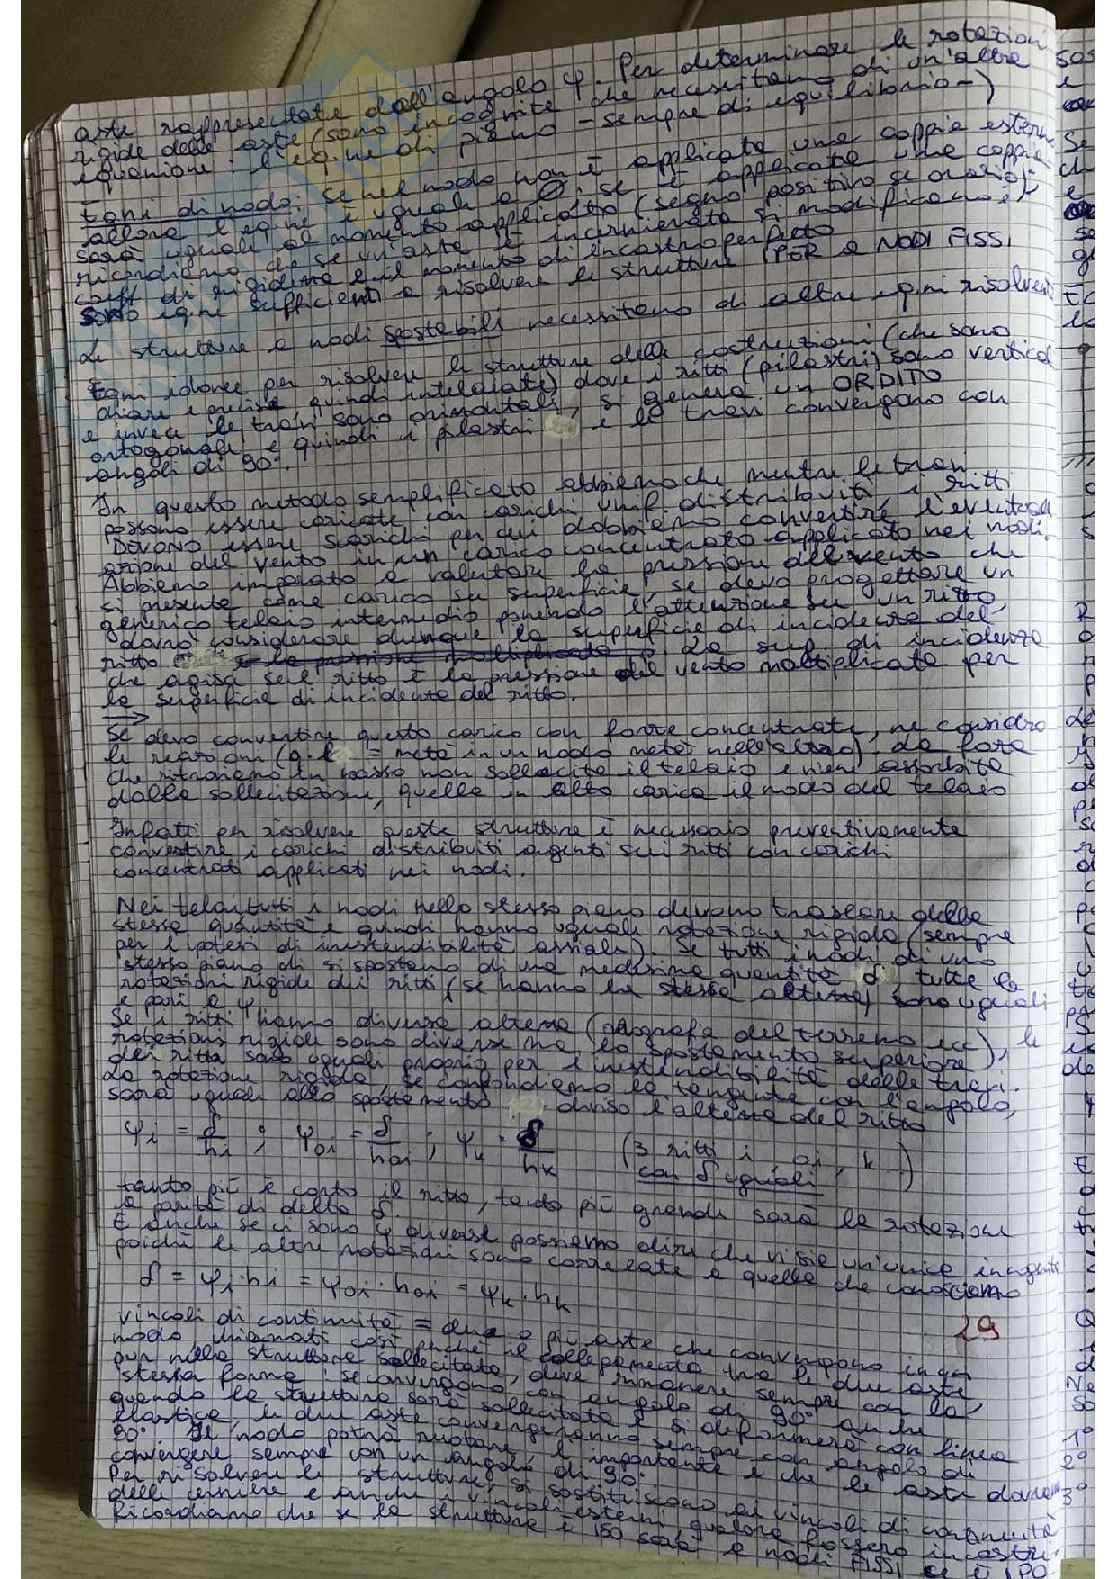 aste rappresentate dall'angolo φ. Per determinare le rotazion
rigide delle aste (sono incognite) che necessitano di un'altra
equazione: l'eq.ne di piano - sempre di equilibrio -)
Eqni di nodo: se nel nodo non è applicata una coppia esterna
allora l'eqni è uguale a 0, se è applicata una coppia
sarà uguale al momento applicato (segno positivo se orario);
ricordiamo che se un'asta è incernierata si modificano i
coeff di rigidezza e il momento di incastro perfetto
sono eqni sufficienti a risolvere le strutture (PER A NODI FISSI
Le strutture a nodi spostabili necessitano di altre eqni risolventi
Eqni idonee per risolvere le strutture delle costruzioni (che sono
chiare e precise quindi intelaiate) dove i ritti (pilastri) sono vertical
e invece le travi sono orizzontali, si genera un ORDITO
ortogonale e quindi i pilastri e le travi convergono con
angoli di 90°.
In questo metodo semplificato abbiamo che mentre le travi
possono essere caricate con carichi unif. distribuiti, i ritti
DEVONO essere scarichi per cui dobbiamo convertire l'eventuale
azione del vento in un carico concentrato applicato nei nodi.
Abbiamo imparato a valutare la pressione del vento che
ci presenta come carico su superficie, se devo progettare un
generico telaio intermedio ponendo l'attenzione su un ritto,
dovrò considerare dunque la superficie di incidenza del
ritto La sup. di incidenza
che agisce sul ritto è la pressione del vento moltiplicata per
la superficie di incidenza del ritto.
Se devo convertire questo carico con forze concentrate, ne considero
le reazioni (q·l = metà in un nodo metà nell'altro), la forza
che ritroviamo in basso non sollecita il telaio e viene assorbita
dalle sollecitazioni, quella in alto carica il nodo del telaio
Infatti per risolvere queste strutture è necessario preventivamente
convertire i carichi distribuiti agenti sui ritti con carichi
concentrati applicati nei nodi.
Nei telai tutti i nodi nello stesso piano devono traslare della
stessa quantità e quindi hanno uguale rotazione rigida (sempre
per l'ipotesi di inestendibilità assiale). Se tutti i nodi di uno
stesso piano si spostano di una medesima quantità δ, tutte le
rotazioni rigide dei ritti (se hanno la stessa altezza) sono uguali
e pari a ψ
Se i ritti hanno diversa altezza (geografia del terreno ecc), le
rotazioni rigide sono diverse ma lo spostamento superiore
dei ritti sono uguali proprio per l'inestendibilità delle travi.
La rotazione rigida, se confondiamo la tangente con l'angolo,
sarà uguale allo spostamento diviso l'altezza del ritto
ψi = δ/hi ; ψoi = δ/hoi ; ψk · δ/hk (3 ritti i, oi, k) con δ uguali
tanto più è corto il ritto, tanto più grande sarà la rotazione
a parità di delta δ
E anche se ci sono ψ diverse possiamo dire che vi sia un'unica incognita
poiché le altre rotazioni sono correlate a quelle che conosciamo
δ = ψi·hi = ψoi·hoi = ψk·hk
29
vincoli di continuità = due o più aste che convergono in un
nodo chiamati così perché il collegamento tra le due aste
pur nella struttura sollecitata, deve rimanere sempre con la
stessa forma: se convergono con angolo di 90° anche
quando la struttura sarà sollecitata e si deformerà con linea
elastica, le due aste convergeranno sempre con angolo di
90°. Il nodo potrà ruotare, l'importante è che le aste
convergere sempre con un angolo di 90°
Per risolvere le strutture, si sostituiscono ai vincoli di continuità
delle cerniere e anche i vincoli esterni qualora fossero incastri.
Ricordiamo che se la struttura è ISO sarà a nodi FISSI